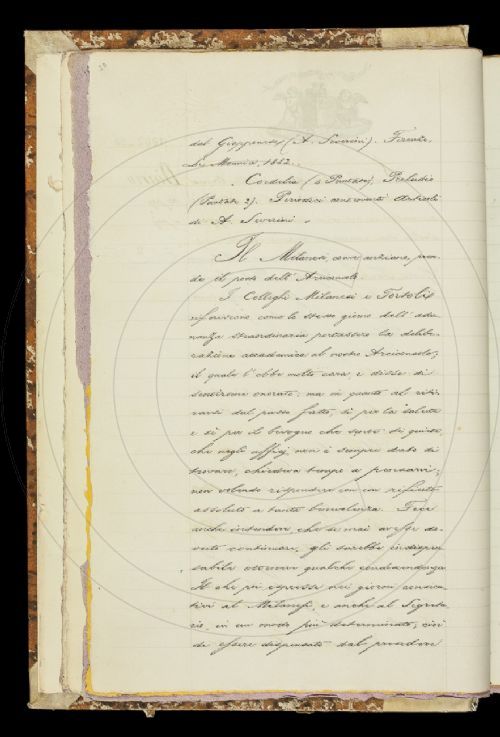 del Giappanese (A. Severini). Firenze,
Le Monnier, 1882.
Cordelia (5 Puntate), Preludio
(Puntate 2). Periodici contenenti articoli
di A. Severini.
Il Milanesi, come anziano, pren-
de il posto dell' Arciconsolo.
I Colleghi Milanesi e Tortoli
riferiscono come lo stesso giorno dell' adu-
nanza straordinaria portassero la delibe-
razione accademica al nostro Arciconsolo;
il quale l' ebbe molto cara, e disse di
sentirsene onorato: ma in quanto al riti-
rarsi dal passo fatto, sì per la salute
e sì per il bisogno che sente di quiete,
che negli uffizj non è sempre dato di
trovare, chiedeva tempo a pensarvi;
non volendo rispondere con un rifiuto
assoluto a tanta benevolenza. Fece
anche intendere, che se mai avesse do-
vuto continuare, gli sarebbe indispen-
sabile ottenere qualche condiscendenza.
Il che poi espresse nei giorni consecu-
tivi al Milanesi, e anche al Segreta-
rio, in un modo più determinato; cioè
di essere dispensato dal prendere